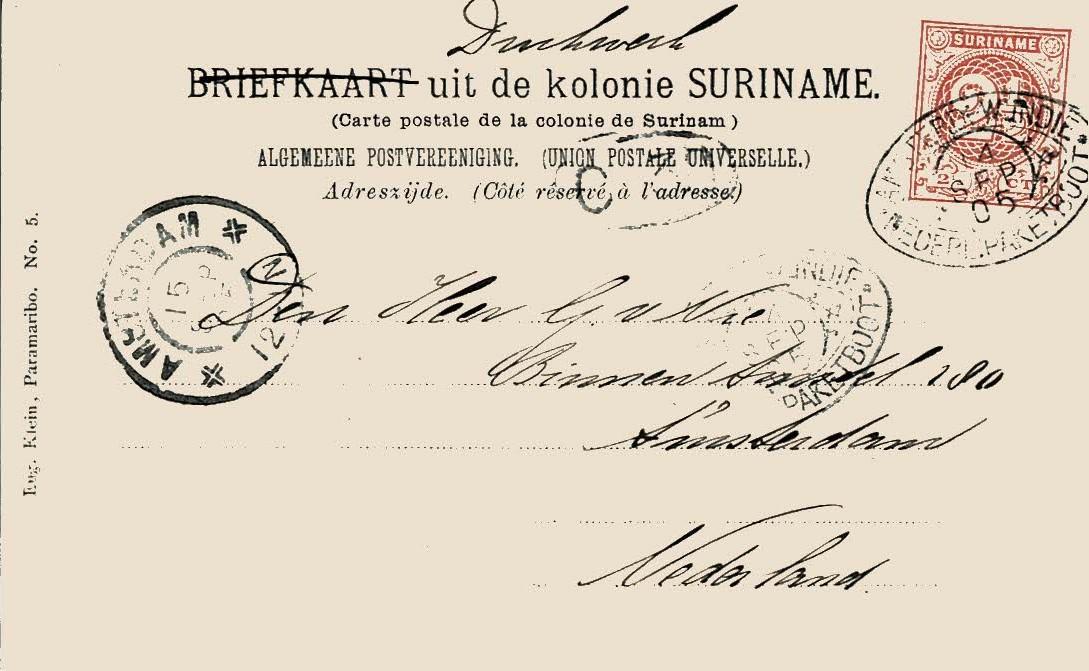 Drukwerk
BRIEFKAART uit de kolonie SURINAME.
(Carte postale de la colonie de Surinam)
ALGEMEENE POSTVEREENIGING. (UNION POSTALE UNIVERSELLE.)
Adreszijde. (Côté réservé à l'adresse.)
SURINAME
W. INDIE
4
SEP
05
NEDERL. PAKETBOOT
AMSTERDAM
15
SEP
12 N
INDIE
SEP
PAKETBOOT
Den Heer
Binnen Amstel 180
Amsterdam
Nederland
Eug. Klein, Paramaribo. No. 5.